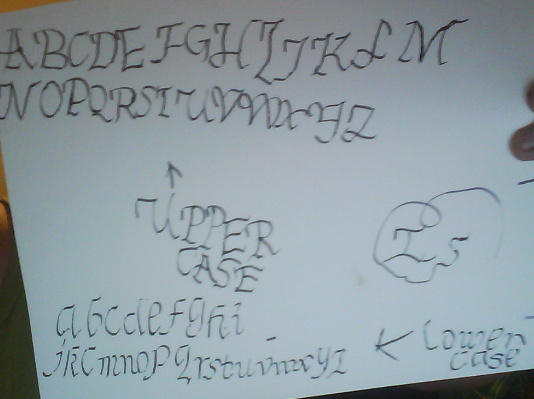 ABCDEFGHIJKLM
NOPQRSTUVWXYZ
UPPER
CASE
Is
abcdefghi
jklmnopqrstuvwxyz
Lower
case